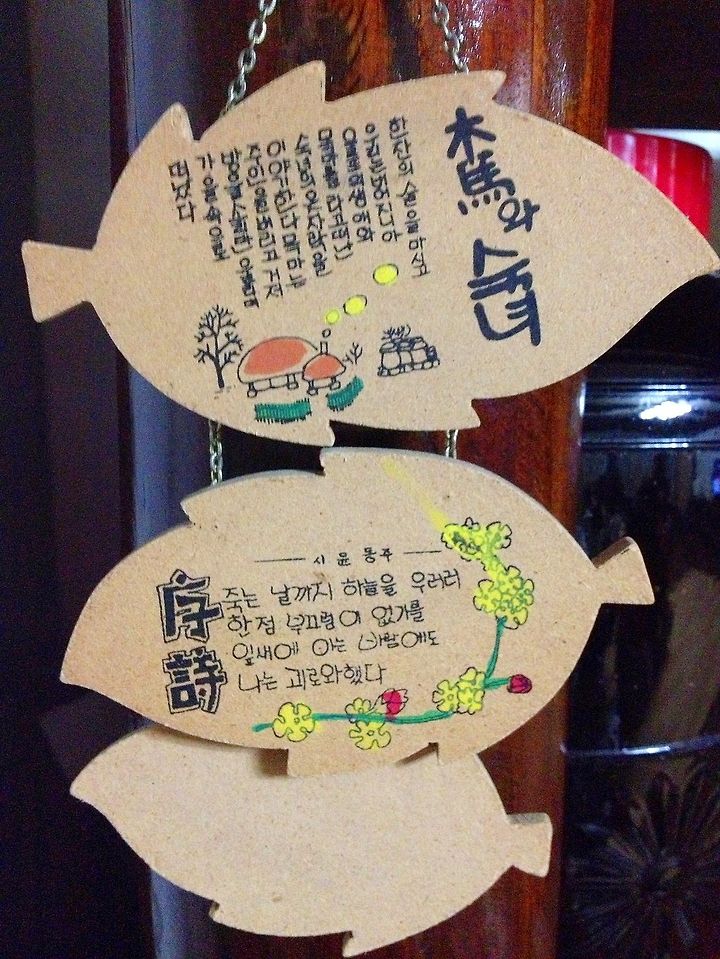 木馬와 숙녀
한잔의 술을 마시고
우리는 버지니아
울프의 생애와
목마를 타고 떠난
숙녀의 옷자락을
이야기한다 목마는
주인을 버리고 거저
방울소리만 울리며
가을속으로
떠났다
序詩
시 윤 동 주
죽는 날까지 하늘을 우러러
한 점 부끄럼이 없기를
잎새에 이는 바람에도
나는 괴로와했다